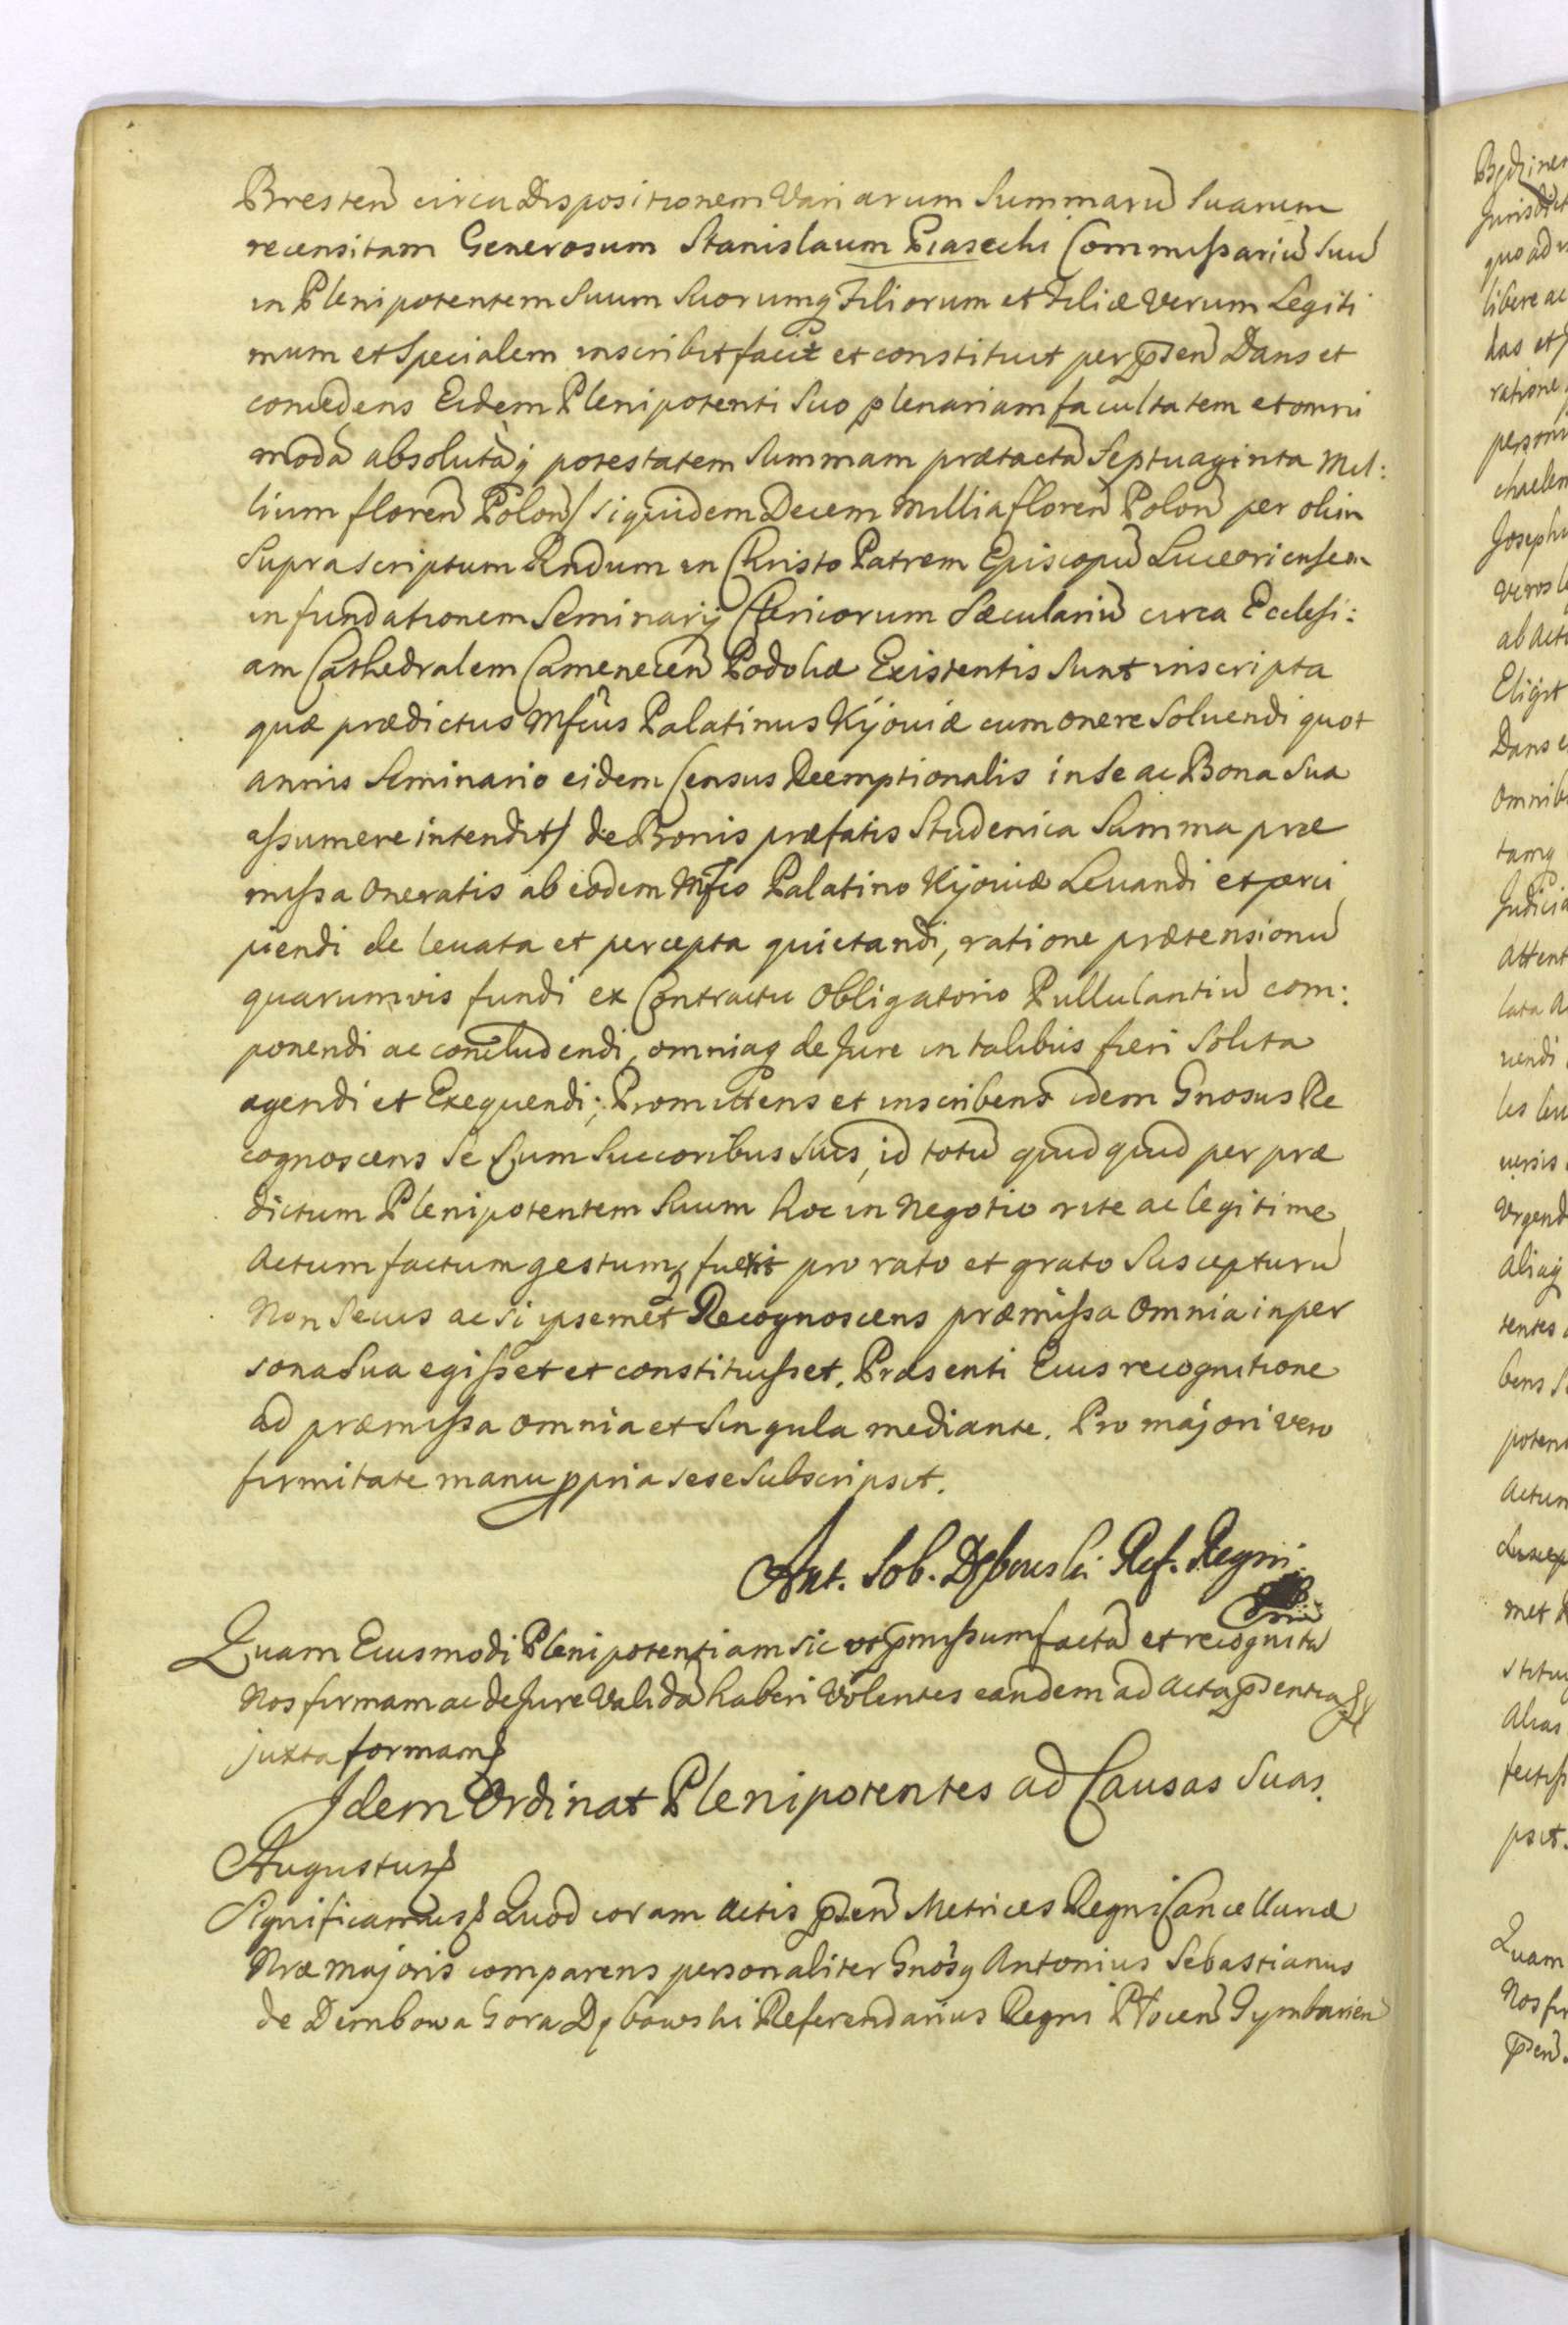 Bresteñ circa Dispositionem Variarum Summarũ Suarum
recensitam Generosum Stanislaum Piasecki Commissariũ Suũ
in Plenipotentem Suum Suorumq Filiorum et Filiæ verum Legiti
mum et Specialem inscribit facit et constituit per p̃señ Dans et
concedens Eidem Plenipotenti Suo plenariam facultatem et omni
modã absolutãq potestatem Summam prætactã Septuaginta Mil:
lium floreñ Poloñ / siquidem Decem Millia floreñ Poloñ per olim
Suprascriptum Rndum in Christo Patrem Episcopũ Luceoriensem
in fundationem Seminarij Clericorum Sæculariũ circa Ecclesi:
am Cathedralem Cameneceñ Podoliæ Existentis Sunt inscripta
quæ prædictus Mfcus Palatinus Kijoviæ cum onere Solvendi quot
annis Seminario eidem Census Reemptionalis in Se ac Bona Sua
assumere intendit / de Bonis præfatis Studenica Summa præ
missa oneratis ab eodem Mfco Palatino Kijoviæ Levandi et perci
piendi de levata et percepta quietandi, ratione prætensionũ
quarumvis fundi ex Contractu Obligatorio Pullulantiũ com:
ponendi ac concludendi, omniaq de Jure in talibus fieri Solita
agendi et Exequendi; Promittens et inscribens idem Gnosus Re
cognoscens Se Cum Succoribus Suis, id totũ quidquid per præ
dictum Plenipotentem Suum hoc in Negotio rite ac legitime
Actum factum gestumq fuerit pro rato et grato Suscepturũ
Non Secus ac si ipsemet Recognoscens præmissa Omnia in per
sona Sua egisset et constituisset. Præsenti Eius recognitione
ad præmissa omnia et Singula mediante. Pro majori vero
firmitate manu ppria sese Subscripsit.
Ant. Seb. Dębowski Ref. Regni
Quam Eiusmodi Plenipotentiam sic ut p̃missum factã et recognitã
Nos firmam ac de Jure Validã haberi Volentes eandem ad Acta p̃sentia
juxta formam
Idem Ordinat Plenipotentes ad Causas Suas.
Augustus
Significamus Quod coram Actis p̃señ Metrices Regni Cancellariæ
Nræ Majoris comparens personaliter Gnosq Antonius Sebastianus
de Dembowa Gora Dębowski Referendarius Regni Ploceñ Gymbarieñ